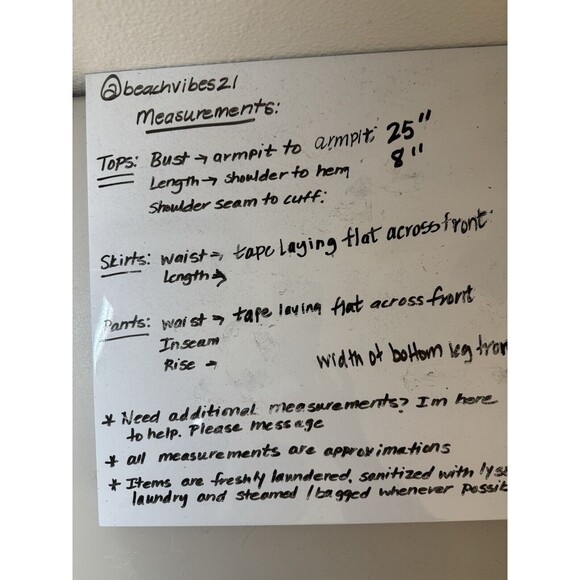 @beachvibes21
Measurements:
Tops: Bust → armpit to armpit: 25"
Length → shoulder to hem 8"
Shoulder seam to cuff:
Skirts: waist → tape laying flat across front
Length →
Pants: waist → tape laying flat across front
Inseam
Rise → width of bottom leg
* Need additional measurements? Im here
to help. Please message
* all measurements are approximations
* Items are freshly laundered, sanitized with
laundry and steamed / bagged whenever